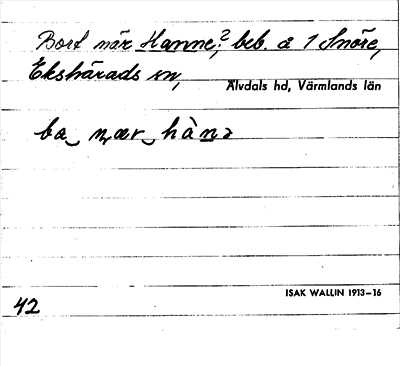 Bort när Hanne? beb. å 1 Snöre,
Ekshärads sn,
Älvdals hd, Värmlands län
ba‿ nær‿ hàna
ISAK WALLIN 1913–16
42